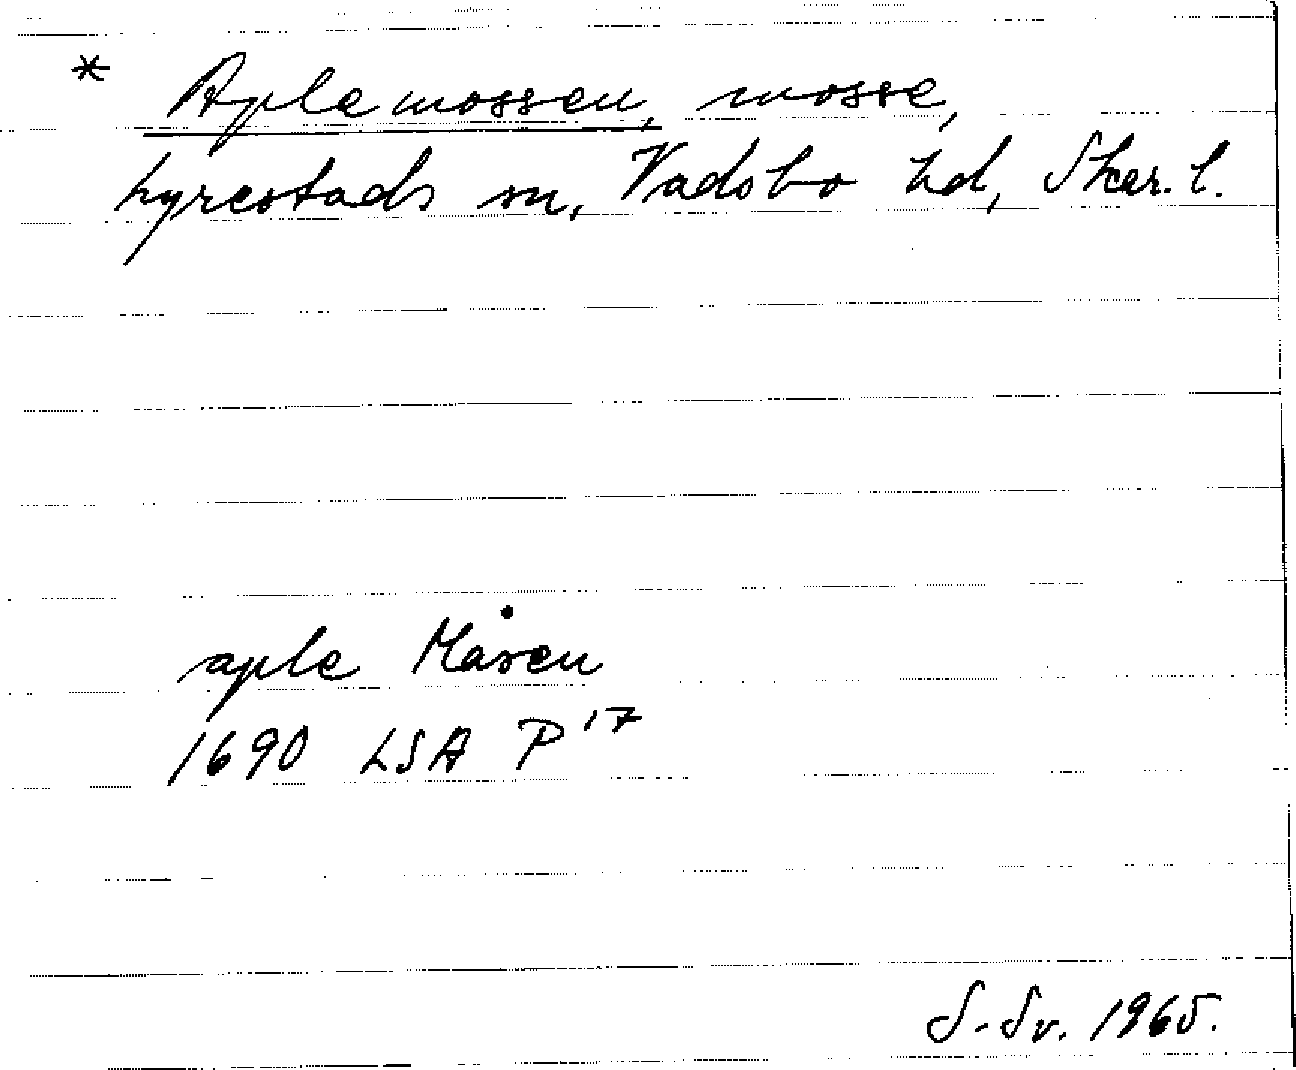 * Aplemossen, mosse,
hyrestads sn, Vadsbo hd, Skar. l.
aple Måsen
1690 LSA P 17
S-Sv. 1965.